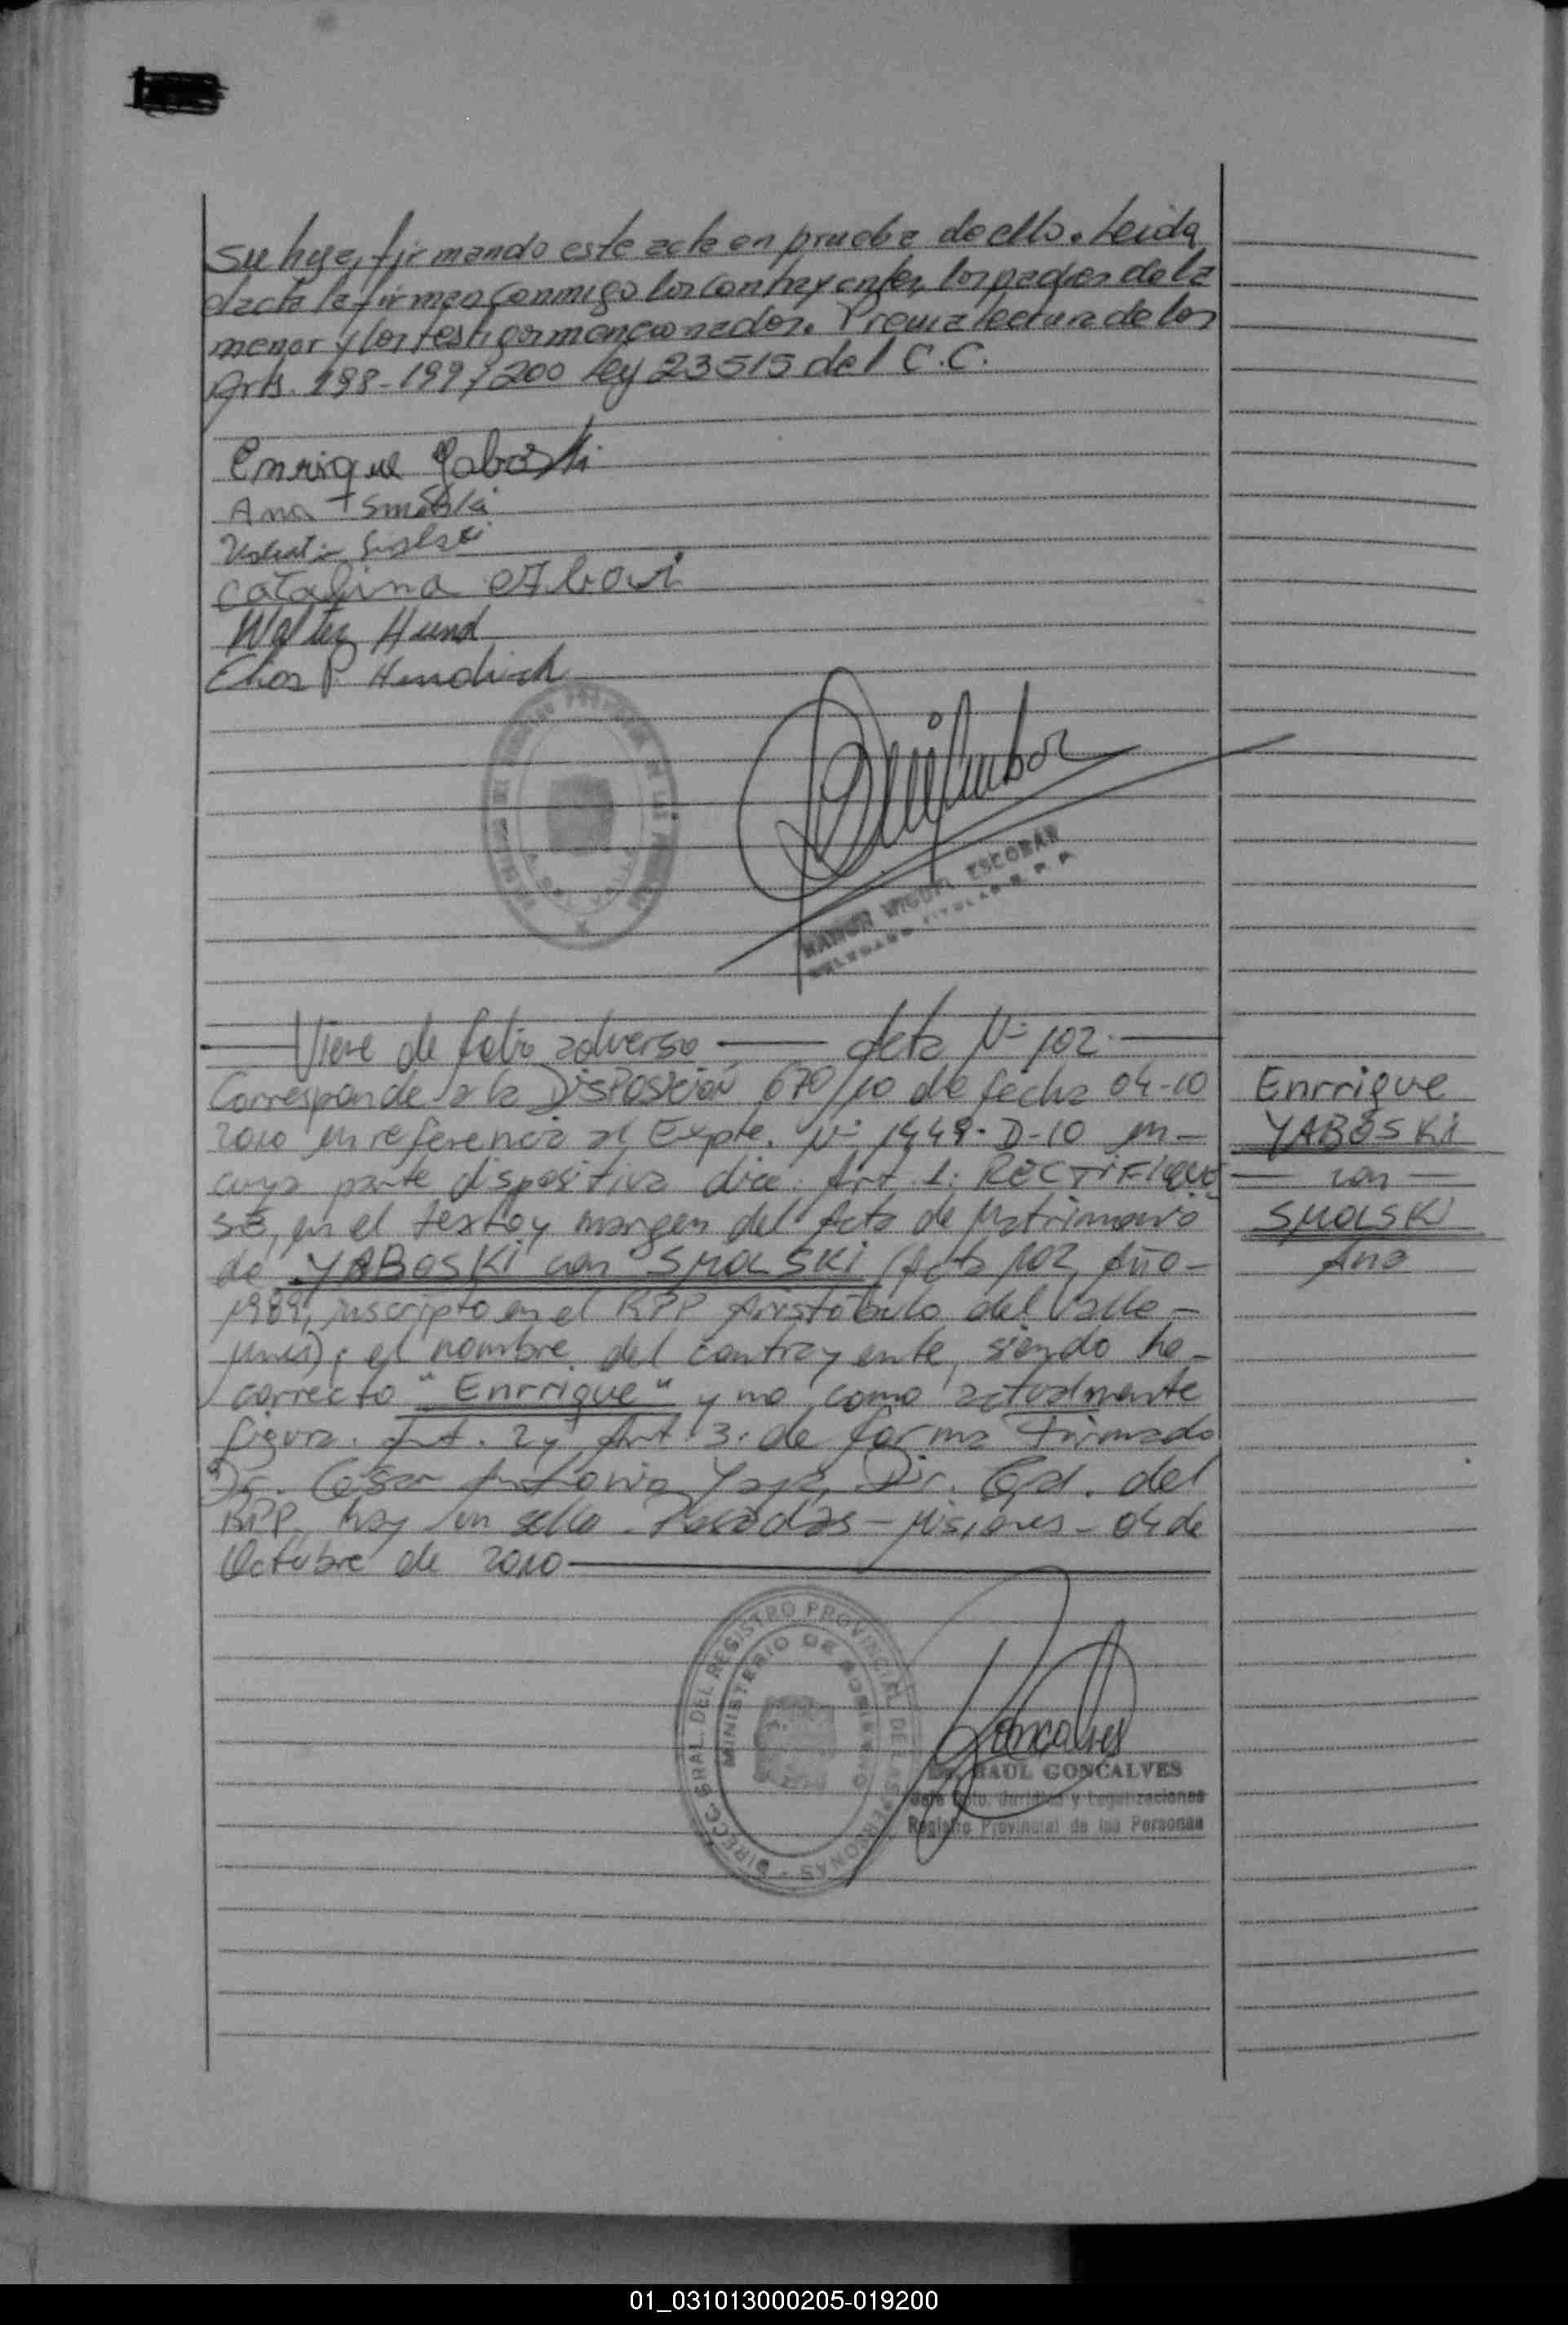 su hija, firmando este acta en prueba de ello. Leida
el acta la firman conmigo los contrayentes, los padres de la
menor y los testigos mencionados. Previa lectura de los
Arts. 198-199 y 200 Ley 23515 del C.C.
Enrrique Yaboski
Ana Smolski
Catalina
Walter Hund
Elias P. Hendrich
RAMON MIGUEL ESCOBAR
DELEGADO TITULAR R. P. P.
Viene de folio adverso — Acta Nº 102.
Corresponde a la DISPOSICIÓN 670/10 de fecha 04-10
2010 en referencia al Expte. Nº 1449-D-10 en
cuya parte dispositiva dice: Art. 1: RECTIFIQUE
SE, en el texto y margen del Acta de Matrimonio
de YABOSKI con SMOLSKI (Acta 102, Año
1989, inscripto en el RPP Aristóbulo del Valle
Mnes), el nombre del contrayente, siendo lo
correcto "Enrrique" y no como actualmente
figura. Art. 2 y Art. 3. de forma Firmado
Dr. César Antonio Dir. Gral. del
RPP, hay un sello. Posadas - Misiones - 04 de
Octubre de 2010
Enrrique
YABOSKI
con
SMOLSKI
Ana
DIRECC. GRAL. DEL REGISTRO PROVINCIAL DE LAS PERSONAS
MINISTERIO DE GOBIERNO
Goncalves
Dr. RAUL GONCALVES
Jefe Dpto. Jurídico y Legalizaciones
Registro Provincial de las Personas
01_031013000205-019200